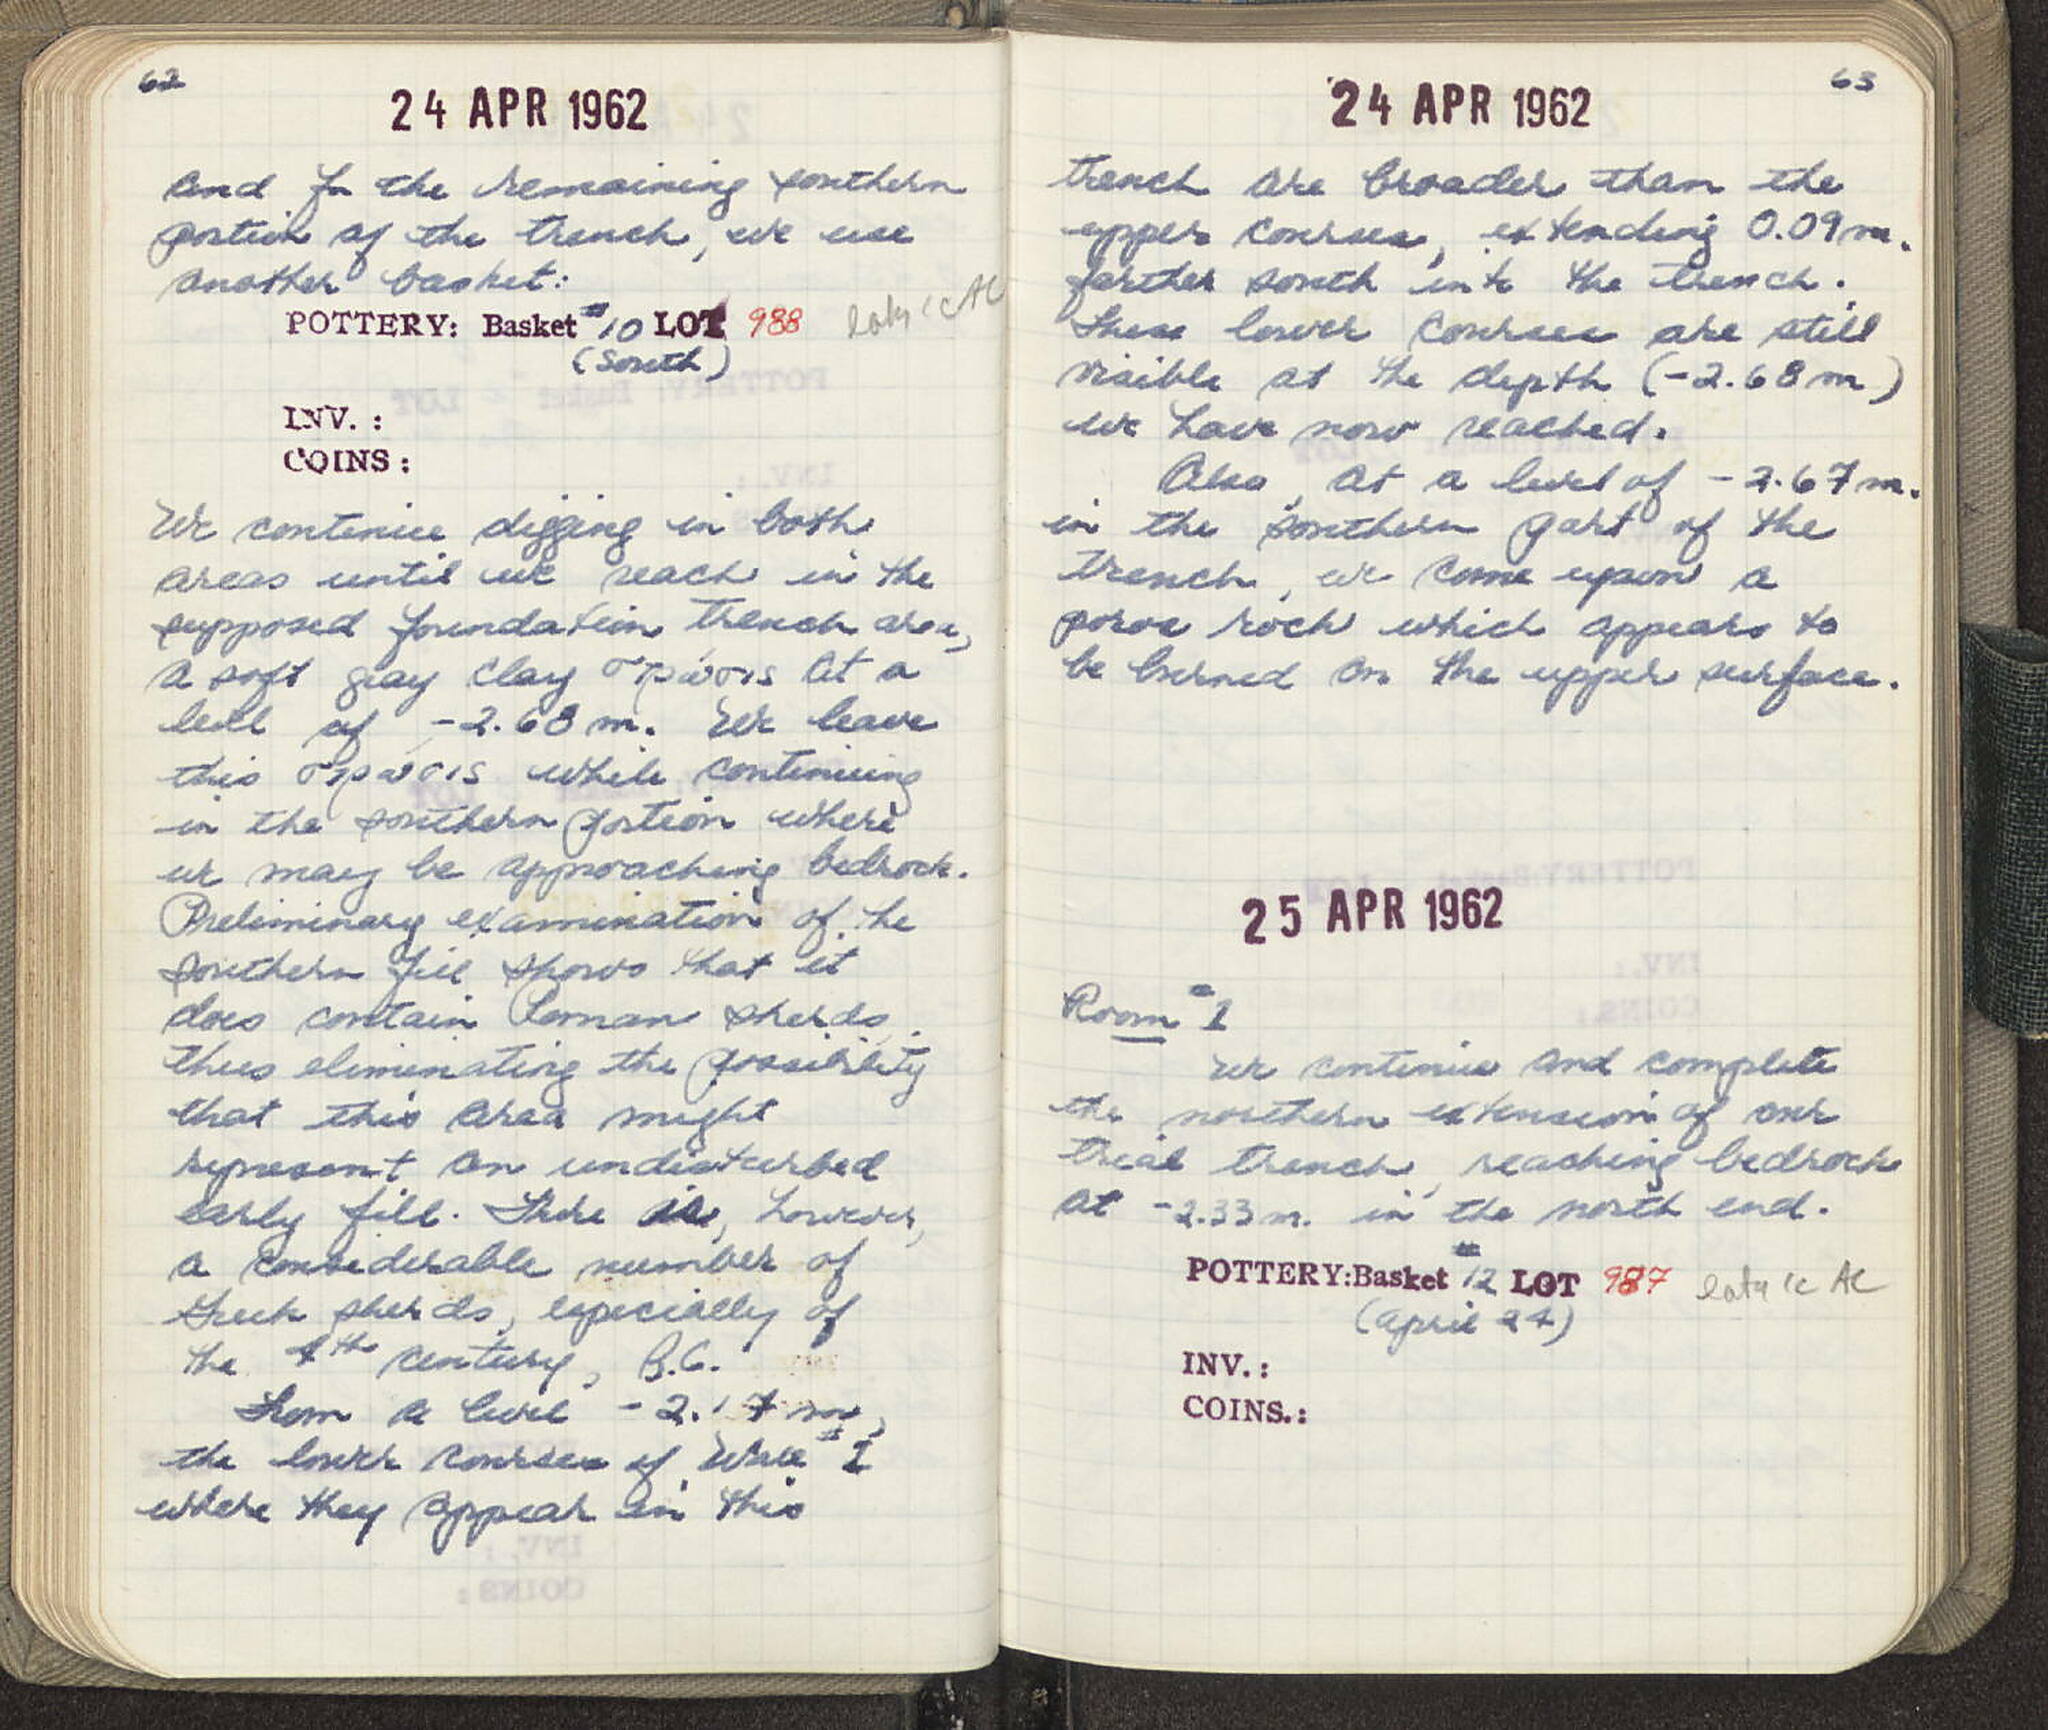 62
24 APR 1962
and for the remaining southern
portion of the trench, we use
another basket:
POTTERY: Basket #10 LOT 988 late 1c AC
(South)
INV. :
COINS :
We continue digging in both
areas until we reach in the
supposed foundation trench area,
a soft gray clay στρῶσις at a
level of -2.68 m. We leave
this στρῶσις while continuing
in the southern portion where
we may be approaching bedrock.
Preliminary examination of the
southern fill shows that it
does contain Roman sherds,
thus eliminating the possibility
that this area might
represent an undisturbed
early fill. There is, however,
a considerable number of
Greek sherds, especially of
the 4th century, B.C.
From a level -2.17 m,
the lower courses of Wall #1
where they appear in this
63
24 APR 1962
trench are broader than the
upper courses, extending 0.09 m.
farther south into the trench.
These lower courses are still
visible at the depth (-2.68 m)
we have now reached.
Also, at a level of -2.67 m.
in the southern part of the
trench, we come upon a
poros rock which appears to
be burned on the upper surface.
25 APR 1962
Room #1
We continue and complete
the northern extension of our
trial trench, reaching bedrock
at -2.33 m. in the north end.
POTTERY: Basket #12 LOT 987 late 1c AC
(April 24)
INV. :
COINS. :